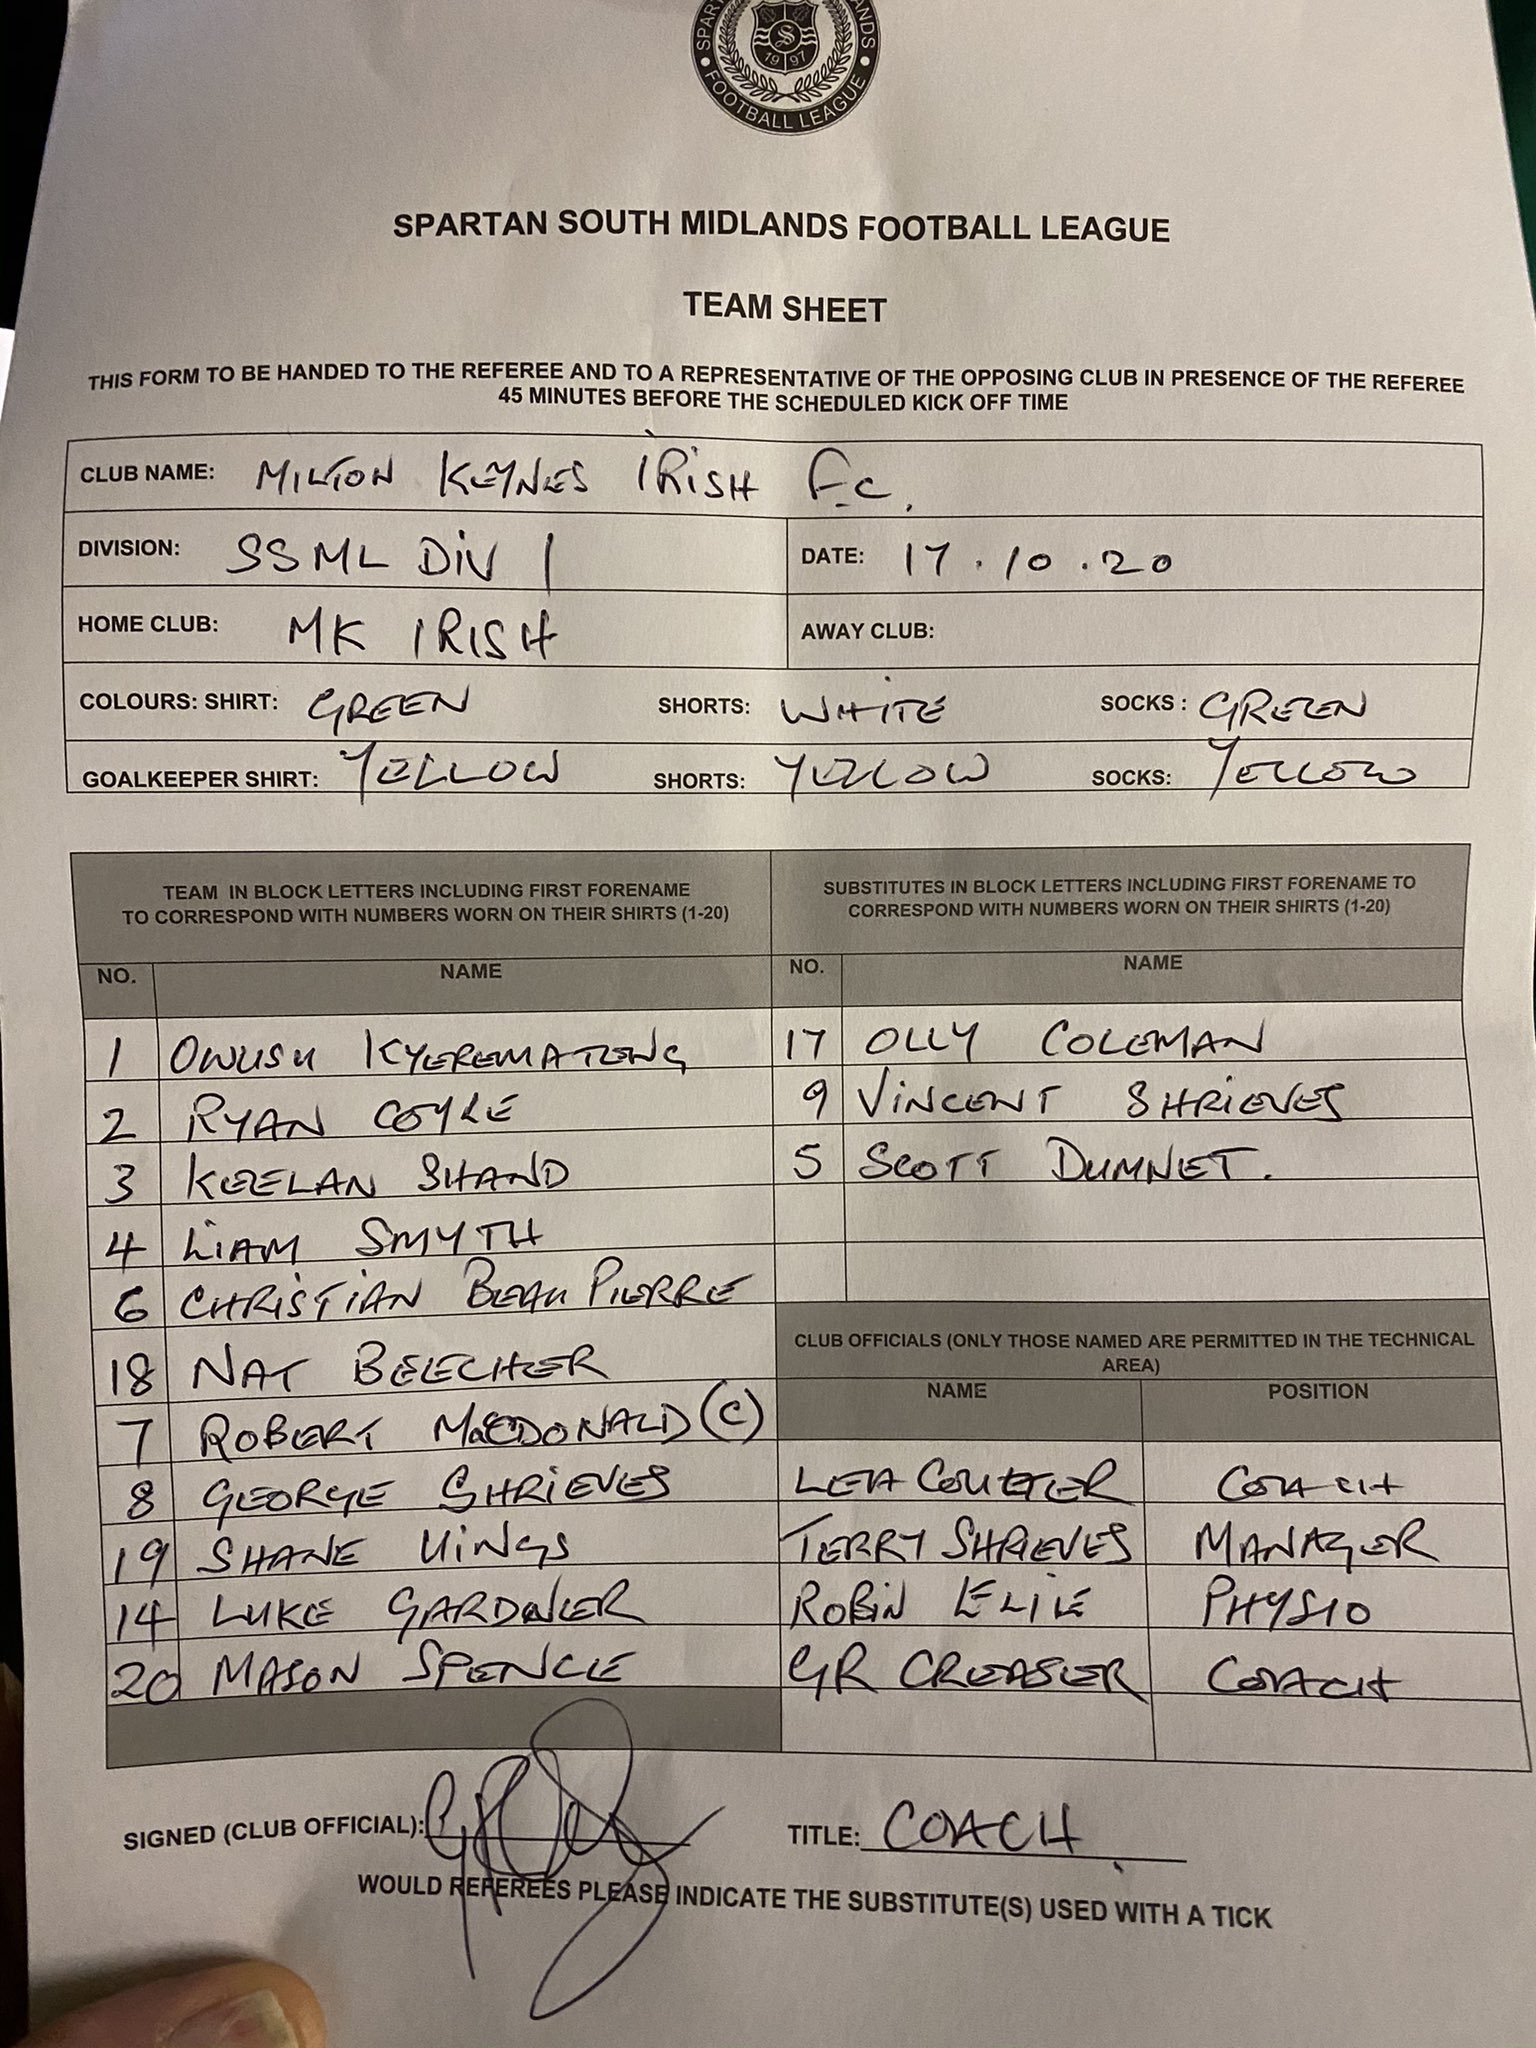 SPAR ANDS
S
19 97
FOOTBALL LEAGUE
SPARTAN SOUTH MIDLANDS FOOTBALL LEAGUE
TEAM SHEET
THIS FORM TO BE HANDED TO THE REFEREE AND TO A REPRESENTATIVE OF THE OPPOSING CLUB IN PRESENCE OF THE REFEREE
45 MINUTES BEFORE THE SCHEDULED KICK OFF TIME
CLUB NAME: MILTON KEYNES IRISH F.C.
DIVISION: SSML DIV 1 DATE: 17.10.20
HOME CLUB: MK IRISH AWAY CLUB:
COLOURS: SHIRT: GREEN SHORTS: WHITE SOCKS: GREEN
GOALKEEPER SHIRT: YELLOW SHORTS: YELLOW SOCKS: YELLOW
TEAM IN BLOCK LETTERS INCLUDING FIRST FORENAME
TO CORRESPOND WITH NUMBERS WORN ON THEIR SHIRTS (1-20)
NO. NAME
1 OWUSU KYEREMATENG
2 RYAN COYLE
3 KEELAN SHAND
4 LIAM SMYTH
6 CHRISTIAN BEAU PIERRE
18 NAT BELECHER
7 ROBERT MacDONALD (C)
8 GEORGE SHRIEVES
19 SHANE UINGS
14 LUKE GARDNER
20 MASON SPENCE
SUBSTITUTES IN BLOCK LETTERS INCLUDING FIRST FORENAME TO
CORRESPOND WITH NUMBERS WORN ON THEIR SHIRTS (1-20)
NO. NAME
17 OLLY COLEMAN
9 VINCENT SHRIEVES
5 SCOTT DUMNET.
CLUB OFFICIALS (ONLY THOSE NAMED ARE PERMITTED IN THE TECHNICAL
AREA)
NAME POSITION
LEA COULTER COACH
TERRY SHRIEVES MANAGER
ROBIN ELIE PHYSIO
GR CREASER COACH
SIGNED (CLUB OFFICIAL): TITLE: COACH
WOULD REFEREES PLEASE INDICATE THE SUBSTITUTE(S) USED WITH A TICK